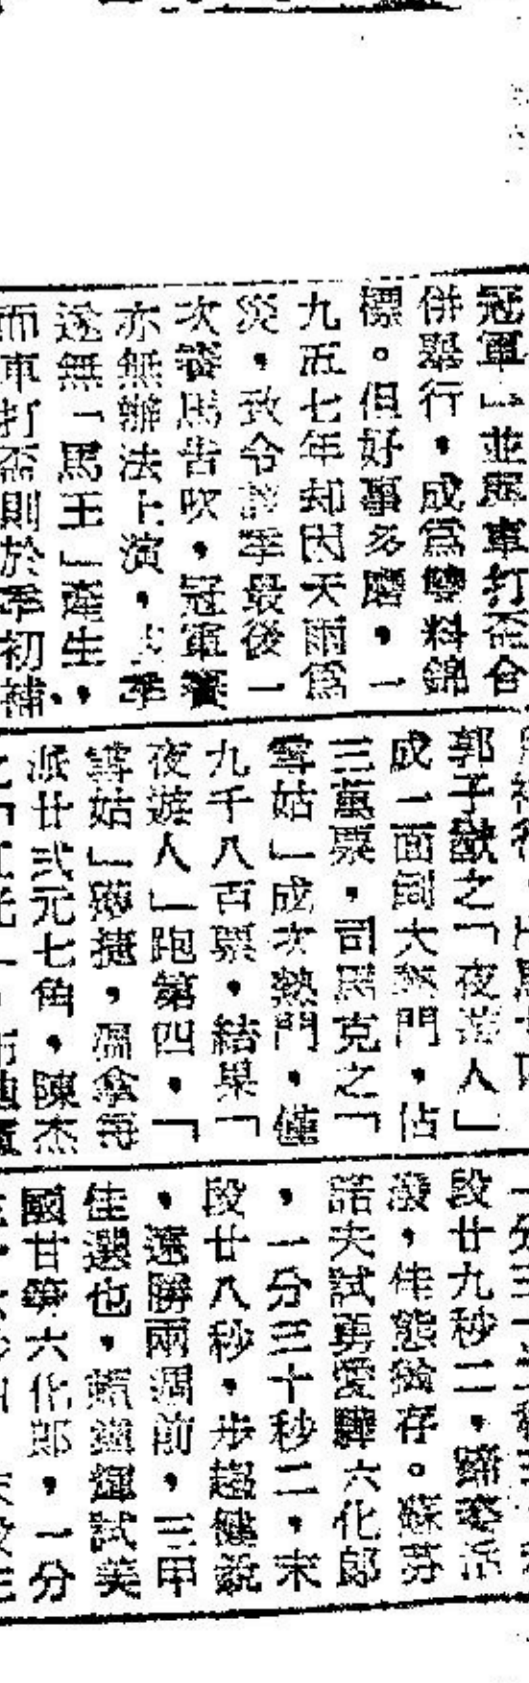 冠軍」並與車打盃合
併舉行,成爲雙料錦
標。但好事多磨,一
九五七年却因天雨爲
災,致令該季最後一
次賽馬告吹,冠軍賽
亦無辦法上演,上季
遂無「馬王」產生,
而車打盃則於季初補
郭子猷之「夜遊人」
成二面倒大熱門,佔
三萬票,司馬克之「
雪姑」成次熱門,僅
九千八百票,結果「
夜遊人」跑第四,「
雪姑」穏捷,溫拿每
派廿弍元七角,陳杰
段廿九秒二,蹄聲活
潑,佳態猶存。蘇芬
諾夫試勇愛驊六化郎
,一分三十秒二,末
段廿八秒,步趨健銳
,遠勝兩週前,三甲
佳選也,輝試美
國甘第六化郎,一分